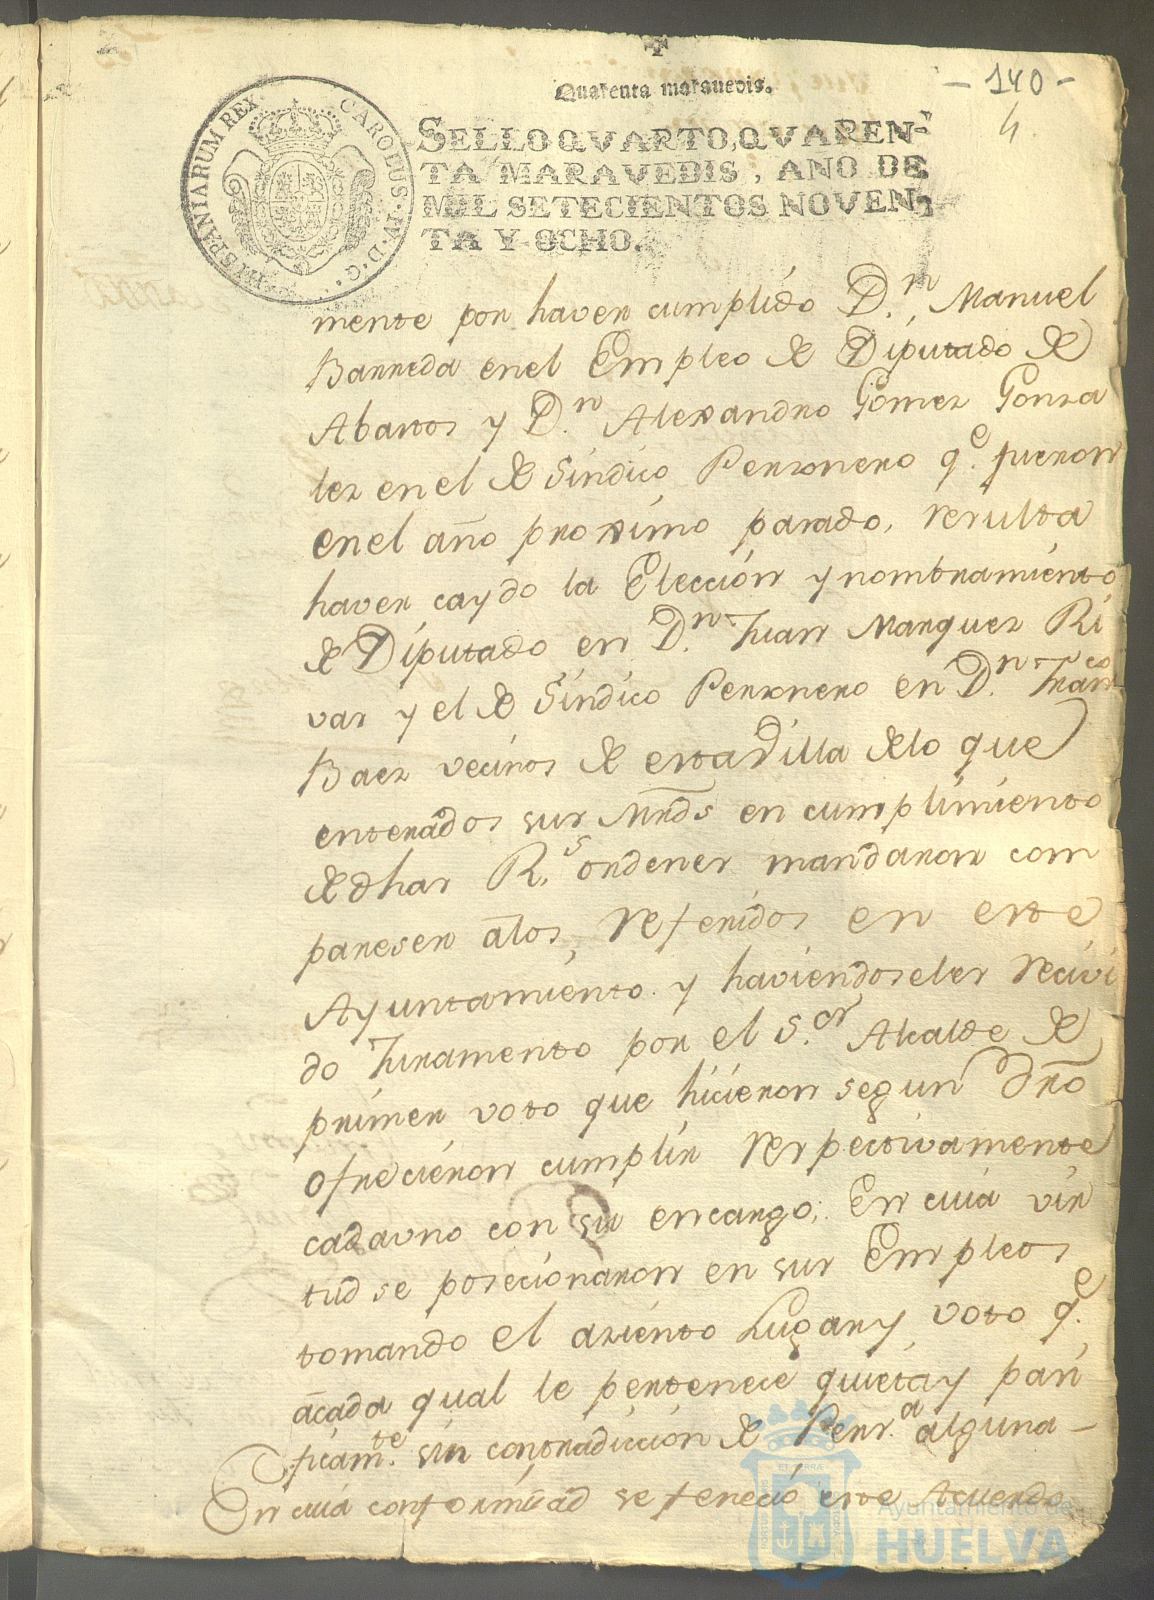 Quarenta maravedis.
- 140 -
4
SELLO QVARTO, QVAREN-
TA MARAVEDIS, AÑO DE
MIL SETECIENTOS NOVEN-
TA Y OCHO.
CAROLUS·IV·D·G·HISPANIARUM REX
mente por haver cumplido D.n Manuel
Barreda en el Empleo de Diputado de
Abastos y D.n Alexandro Gomez Gonza
lez en el de Sindico Personero q.e fueron
en el año proximo pasado, resulta
haver caydo la Elección y nombramiento
de Diputado en D.n Juan Marquez Ri
vas y el de Sindico Personero en D.n Fran.co
Baez vecinos de esta Villa de lo que
enterados sus Mrds en cumplimiento
de dhas R.s ordenes mandaron com
pareser a los referidos en este
Ayuntamiento y haviendoseles recivi
do Juramento por el S.or Alcalde de
primer voto que hicieron segun dro
ofrecieron cumplir respectivamente
cada uno con su encargo; En cuia vir
tud se posecionaron en sus Empleos
tomando el aziento Lugar y voto q.e
a cada qual le pertenece quieta y pasi
ficam.te sin contradiccion de Pers.a alguna -
En cuia conformidad se feneció este Acuerdo
Ayuntamiento de
HUELVA